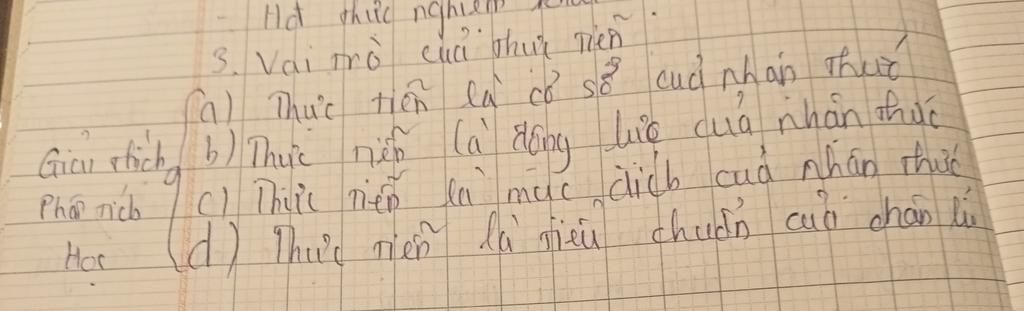 - Hđ thực nghiệm
3. Vai trò của thực tiễn
a) Thực tiễn là cơ sở của nhận thức
Giải thích b) Thực tiễn là động lực của nhận thức
Phân tích c) Thực tiễn là mục đích của nhận thức
Học d) Thực tiễn là tiêu chuẩn của chân lí